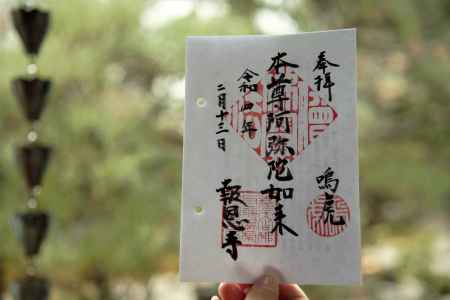 奉拝
鳴虎
本尊阿弥陀如来
令和四年
二月十三日
報恩寺